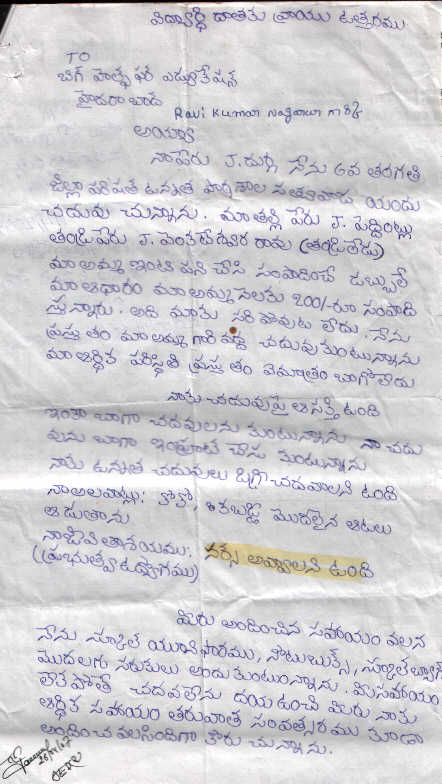 విద్యార్థి దాతకు వ్రాయు ఉత్తరము
TO
బిగ్ హెల్ప్ ఫర్ ఎడ్యుకేషన్
హైదరాబాద్
Ravi Kumar గారికి
అయ్యా
నాపేరు J. దుర్గ నేను 6వ తరగతి
జిల్లా పరిషత్ ఉన్నత పాఠశాల యందు
చదువు చున్నాను. మా తల్లి పేరు J. పెద్దింట్లు
తండ్రిపేరు J. వెంకటేశ్వర రావు (తండ్రిలేడు)
మా అమ్మ ఇంటి పని చేసి సంపాదించే డబ్బులే
మా ఆధారం మా అమ్మ నెలకు 200/-రూ సంపాది
స్తున్నారు. అది మాకు సరి పోవుట లేదు. నేను
ప్రస్తుతం మా అమ్మ గారి వద్ద చదువుకుంటున్నాను
మా ఆర్థిక పరిస్థితి ప్రస్తుతం ఏమాత్రం బాగోలేదు
నాకు చదువుపై ఆసక్తి ఉంది
ఇంకా బాగా చదవాలను కుంటున్నాను నా చదు
వును బాగా ఇంప్రూవ్ చేసు కుంటున్నాను
నాకు ఉన్నత చదువులు డిగ్రీ చదవాలని ఉంది
నా అలవాట్లు: కోకో, కబడ్డీ మొదలైన ఆటలు
ఆడుతాను
నా జీవితాశయము: నర్సు అవ్వాలని ఉంది
(ప్రభుత్వ ఉద్యోగము)
మీరు అందించిన సహాయం వలన
నేను స్కూల్ యూనిఫారము, నోటుబుక్స్, స్కూల్ బ్యాగ్
మొదలగు సరుకులు అందుకుంటున్నాను. మీ సహాయం
లేక పోతే చదవలేను దయ ఉంచి మీరు నాకు
ఆర్థిక సహాయం తరువాత సంవత్సరము కూడా
అందించ వలసిందిగా కోరు చున్నాను.